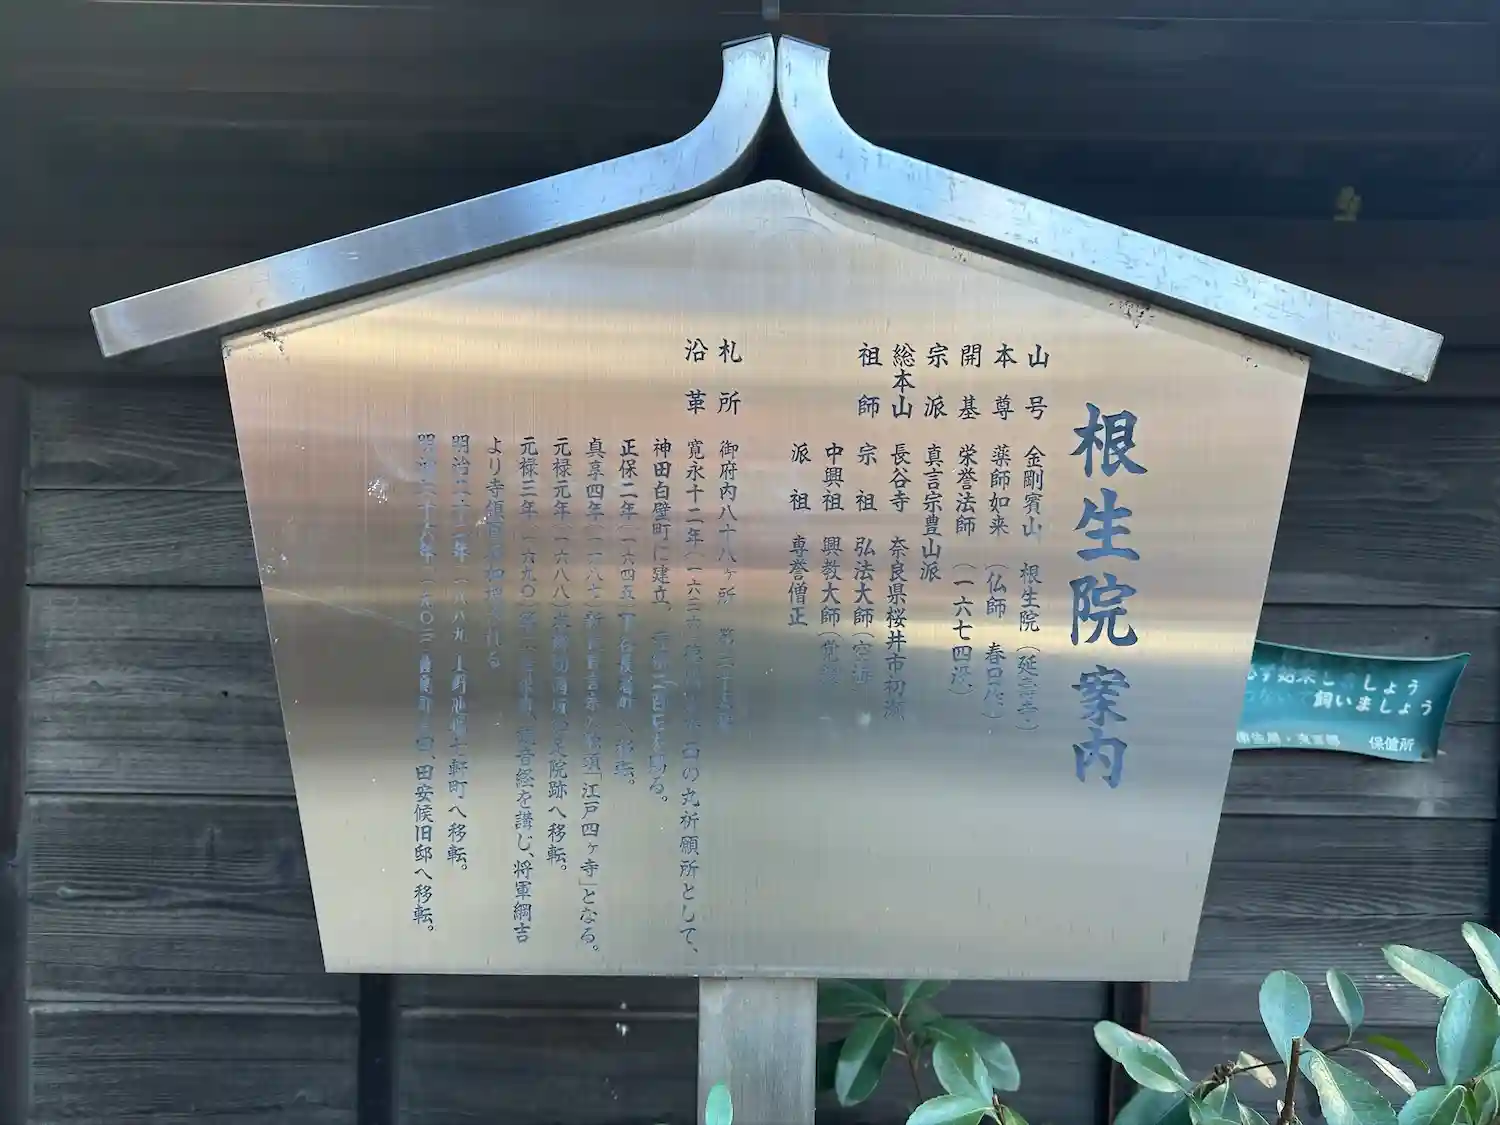 根生院 案内
山号 金剛寳山 根生院（延壽寺）
本尊 薬師如来（仏師 春日作）
開基 栄誉法師（一六七四没）
宗派 真言宗豊山派
総本山 長谷寺 奈良県桜井市初瀬
祖師 宗祖 弘法大師（空海）
中興祖 興教大師（覚鑁）
派祖 専誉僧正
札所 御府内八十八ヶ所 第三十五番
沿革 寛永十二年（一六三六）の丸祈願所として、
神田白壁町に建立、賜る。
正保二年（一六四五）下谷長者町へ移転。
真享四年（一六八七）新義真言宗の触頭「江戸四ヶ寺」となる。
元禄元年（一六八八）院跡へ移転。
元禄三年（一六九〇）観音経を講じ、将軍綱吉
より寺領を加増される
明治二十二年（一八八九）上野池端七軒町へ移転。
明治三十六年（一九〇三）高田町、田安候旧邸へ移転。
始末しましょう
飼いましょう
保健所